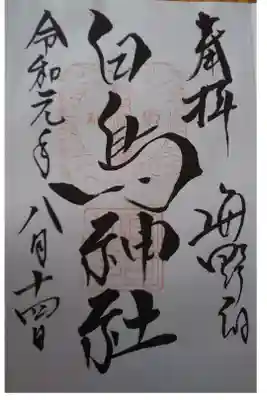 奉拝
海野宿
白鳥神社
令和元年八月十四日